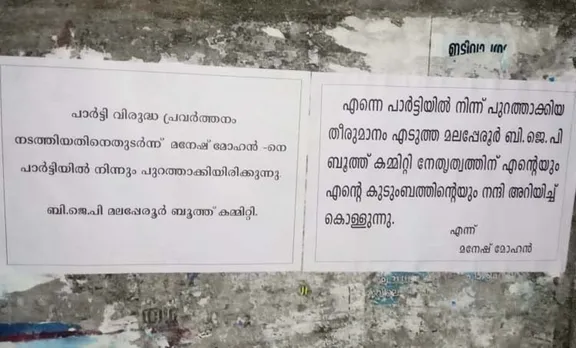 പാർട്ടി വിരുദ്ധ പ്രവർത്തനം
നടത്തിയതിനെതുടർന്ന് മനേഷ് മോഹൻ -നെ
പാർട്ടിയിൽ നിന്നും പുറത്താക്കിയിരിക്കുന്നു.
ബി.ജെ.പി മലപ്പേരൂർ ബൂത്ത് കമ്മിറ്റി.
എന്നെ പാർട്ടിയിൽ നിന്ന് പുറത്താക്കിയ
തീരുമാനം എടുത്ത മലപ്പേരൂർ ബി.ജെ.പി
ബൂത്ത് കമ്മിറ്റി നേതൃത്വത്തിന് എന്റെയും
എന്റെ കുടുംബത്തിന്റെയും നന്ദി അറിയിച്ച്
കൊള്ളുന്നു.
എന്ന്
മനേഷ് മോഹൻ